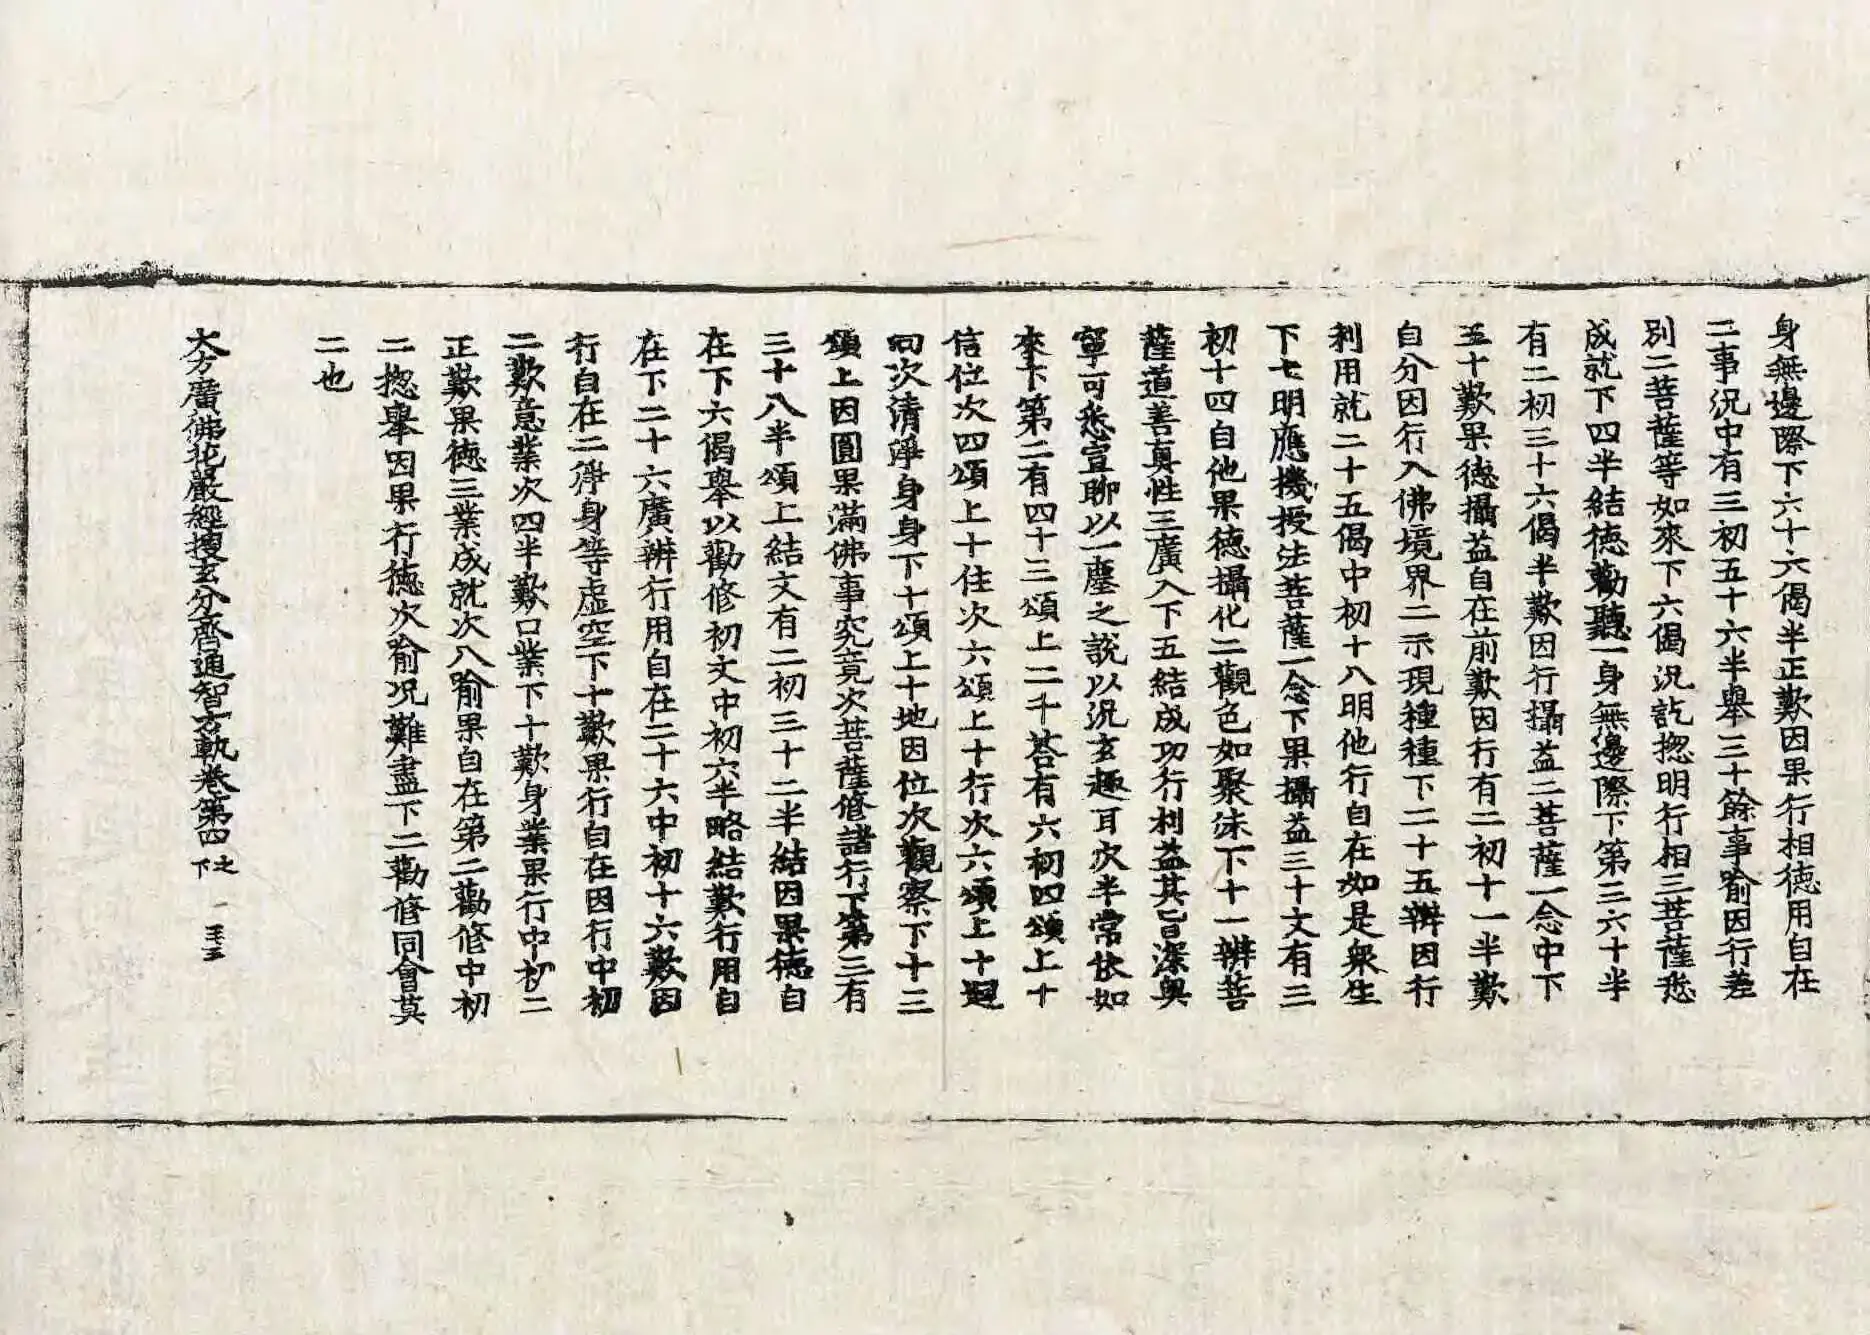 身無邊際下六十六偈半正歎因果行相德用自在
二事況中有三初五十六半舉三十餘事喻因行差
別二菩薩等如來下六偈況訖揔明行相三菩薩悉
成就下四半結德勸聽一身無邊際下第三六十半
有二初三十六偈半歎因行攝益二菩薩一念中下
五十歎果德攝益自在前歎因行有二初十一半歎
自分因行入佛境界二示現種種下二十五辨因行
利用就二十五偈中初十八明他行自在如是衆生
下七明應機授法菩薩一念下果攝益三十文有三
初十四自他果德攝化二觀色如聚沫下十一辨菩
薩道善真性三廣入下五結成功行利益其旨深奧
寧可悉宣聊以一塵之說以況玄趣耳次半常依如
來下第二有四十三頌上二千荅有六初四頌上十
信位次四頌上十住次六頌上十行次六頌上十迴
向次清淨身身下十頌上十地因位次觀察下十三
頌上因圓果滿佛事究竟次菩薩修諸行下第三有
三十八半頌上結文有二初三十二半結因果德自
在下六偈舉以勸修初文中初六半略結歎行用自
在下二十六廣辨行用自在二十六中初十六歎因
行自在二淨身等虛空下十歎果行自在因行中初
二歎意業次四半歎口業下十歎身業果行中初二
正歎果德三業成就次八喻果自在第二勸修中初
二揔舉因果行德次喻況難盡下二勸修同會莫
二也
大方廣佛花嚴經搜玄分齊通智方軌卷第四之下 一 三十五